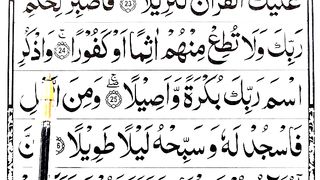 عَلَيْكَ الْقُرْاٰنَ تَنْزِيْلًا ﴿23﴾ فَاصْبِرْ لِحُكْمِ
رَبِّكَ وَلَا تُطِعْ مِنْهُمْ اٰثِمًا اَوْ كَفُوْرًا ﴿24﴾ وَاذْكُرِ
اسْمَ رَبِّكَ بُكْرَةً وَّاَصِيْلًا ﴿25﴾ وَمِنَ
فَاسْجُدْ لَهٗ وَسَبِّحْهُ لَيْلًا طَوِيْلًا